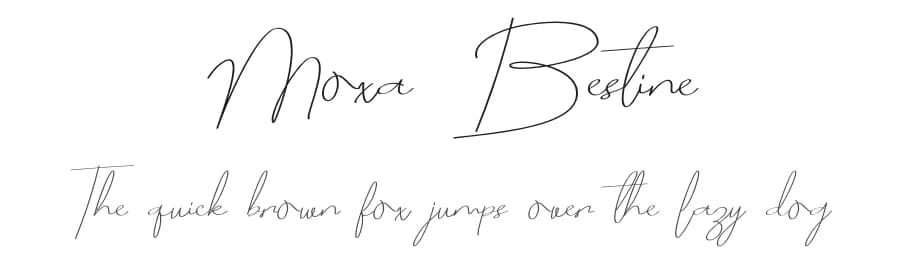 Moxa Bestine
The quick brown fox jumps over the lazy dog